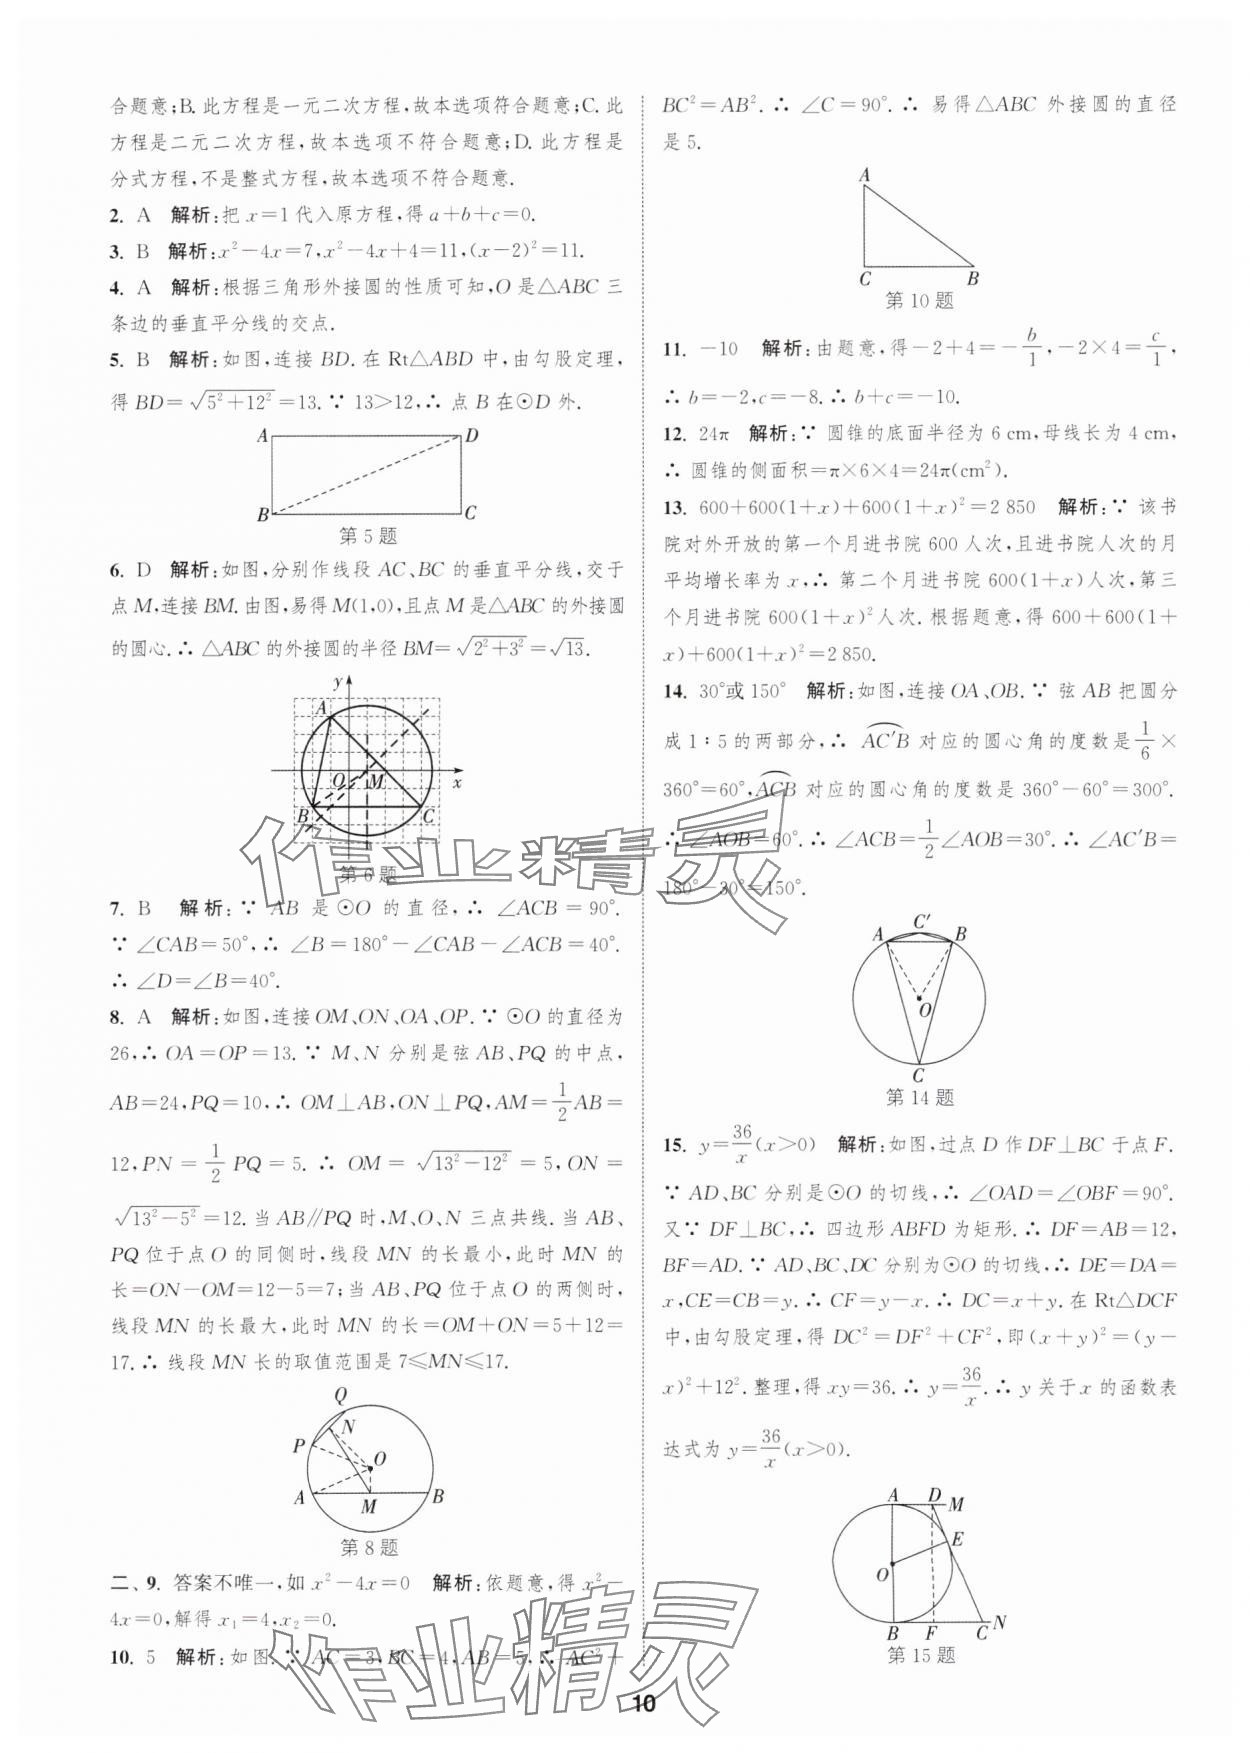 合题意;B. 此方程是一元二次方程,故本选项符合题意;C. 此
方程是二元二次方程,故本选项不符合题意;D. 此方程是
分式方程,不是整式方程,故本选项不符合题意.
2. A 解析:把 x=1 代入原方程,得 a+b+c=0.
3. B 解析:x²-4x=7,x²-4x+4=11,(x-2)²=11.
4. A 解析:根据三角形外接圆的性质可知,O 是△ABC 三
条边的垂直平分线的交点.
5. B 解析:如图,连接 BD. 在 Rt△ABD 中,由勾股定理,
得 BD=√(5²+12²)=13.∵ 13>12,∴ 点 B 在⊙D 外.
A D
B C
第 5 题
6. D 解析:如图,分别作线段 AC、BC 的垂直平分线,交于
点 M,连接 BM. 由图,易得 M(1,0),且点 M 是△ABC 的外接圆
的圆心.∴ △ABC 的外接圆的半径 BM=√(2²+3²)=√13.
y
A
O M x
B C
第 6 题
7. B 解析:∵ AB 是 ⊙O 的直径,∴ ∠ACB=90°.
∵ ∠CAB=50°,∴ ∠B=180°-∠CAB-∠ACB=40°.
∴ ∠D=∠B=40°.
8. A 解析:如图,连接 OM、ON、OA、OP.∵ ⊙O 的直径为
26,∴ OA=OP=13.∵ M、N 分别是弦 AB、PQ 的中点,
AB=24,PQ=10,∴ OM⊥AB,ON⊥PQ,AM=1/2AB=
12,PN=1/2PQ=5.∴ OM=√(13²-12²)=5,ON=
√(13²-5²)=12. 当 AB∥PQ 时,M、O、N 三点共线. 当 AB、
PQ 位于点 O 的同侧时,线段 MN 的长最小,此时 MN 的
长=ON-OM=12-5=7;当 AB、PQ 位于点 O 的两侧时,
线段 MN 的长最大,此时 MN 的长=OM+ON=5+12=
17.∴ 线段 MN 长的取值范围是 7≤MN≤17.
Q
N
P
O
A M B
第 8 题
二、9. 答案不唯一,如 x²-4x=0 解析:依题意,得 x²-
4x=0,解得 x₁=4,x₂=0.
10. 5 解析:如图.∵ AC=3,BC=4,AB=5,∴ AC²+
BC²=AB².∴ ∠C=90°.∴ 易得△ABC 外接圆的直径
是 5.
A
C B
第 10 题
11. -10 解析:由题意,得-2+4=-b/1,-2×4=c/1,
∴ b=-2,c=-8.∴ b+c=-10.
12. 24π 解析:∵ 圆锥的底面半径为 6 cm,母线长为 4 cm,
∴ 圆锥的侧面积=π×6×4=24π(cm²).
13. 600+600(1+x)+600(1+x)²=2 850 解析:∵ 该书
院对外开放的第一个月进书院 600 人次,且进书院人次的月
平均增长率为 x,∴ 第二个月进书院 600(1+x)人次,第三
个月进书院 600(1+x)²人次. 根据题意,得 600+600(1+
x)+600(1+x)²=2 850.
14. 30°或 150° 解析:如图,连接 OA、OB.∵ 弦 AB 把圆分
成 1∶5 的两部分,∴ AC′B 对应的圆心角的度数是1/6×
360°=60°,ACB 对应的圆心角的度数是 360°-60°=300°.
∴ ∠AOB=60°.∴ ∠ACB=1/2∠AOB=30°.∴ ∠AC′B=
180°-30°=150°.
C′
A B
O
C
第 14 题
15. y=36/x(x>0) 解析:如图,过点 D 作 DF⊥BC 于点 F.
∵ AD、BC 分别是⊙O 的切线,∴ ∠OAD=∠OBF=90°.
又∵ DF⊥BC,∴ 四边形 ABFD 为矩形.∴ DF=AB=12,
BF=AD.∵ AD、BC、DC 分别为⊙O 的切线,∴ DE=DA=
x,CE=CB=y.∴ CF=y-x.∴ DC=x+y. 在 Rt△DCF
中,由勾股定理,得 DC²=DF²+CF²,即(x+y)²=(y-
x)²+12². 整理,得 xy=36.∴ y=36/x.∴ y 关于 x 的函数表
达式为 y=36/x(x>0).
A D M
E
O
B F C N
第 15 题
10
作业精灵
作业精灵